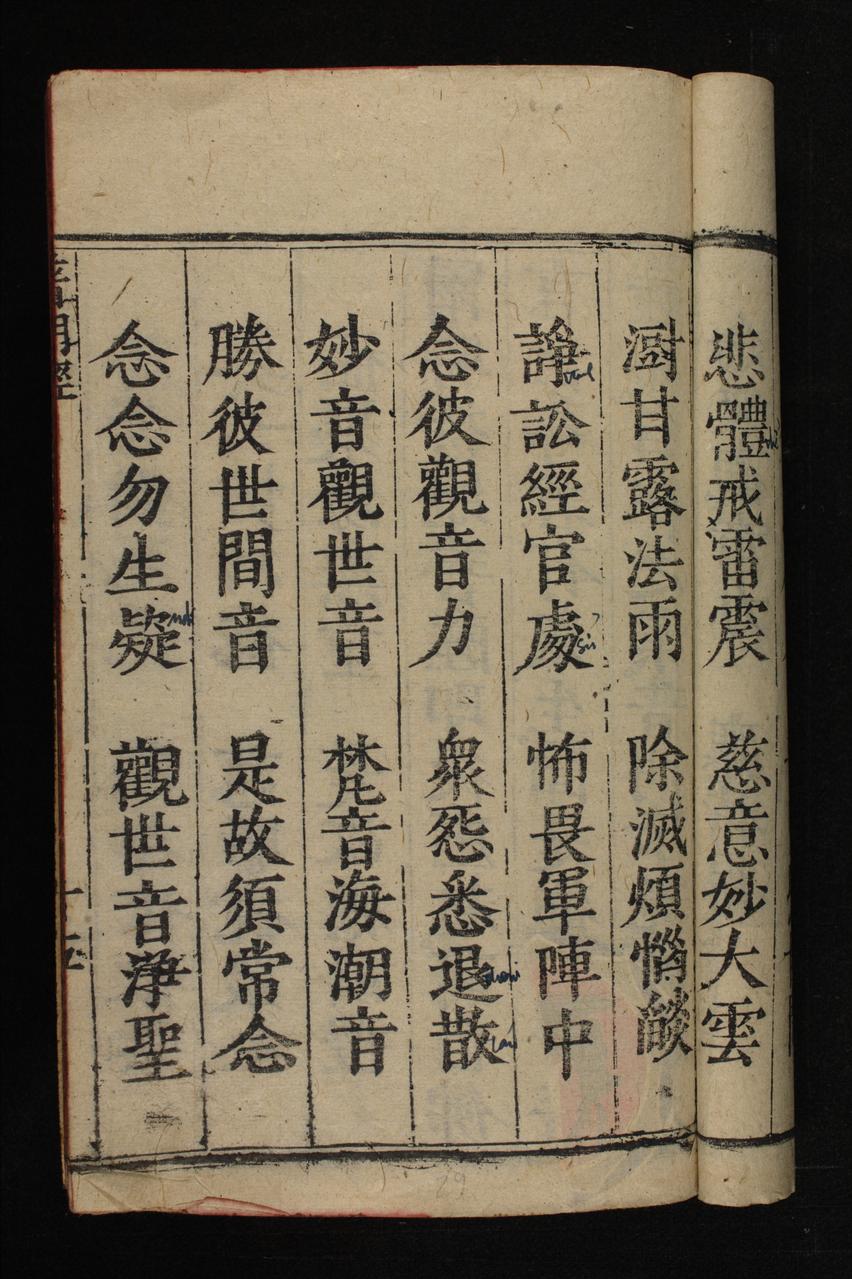 悲體戒雷震 慈意妙大雲
澍甘露法雨 除滅煩惱燄
諍訟經官處 怖畏軍陣中
念彼觀音力 衆怨悉退散
妙音觀世音 梵音海潮音
勝彼世間音 是故須常念
念念勿生疑 觀世音淨聖
29